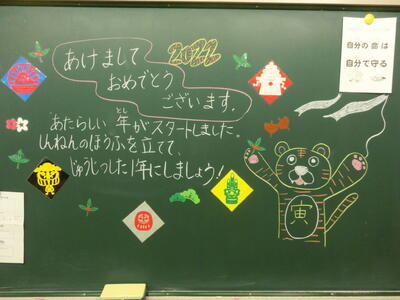 あけまして
おめでとう
ございます。
2022
自分の命は
自分で守る
あたらしい年がスタートしました。
とし
しんねんのほうふを立てて、
じゅうじつした1年にしましょう!
寅